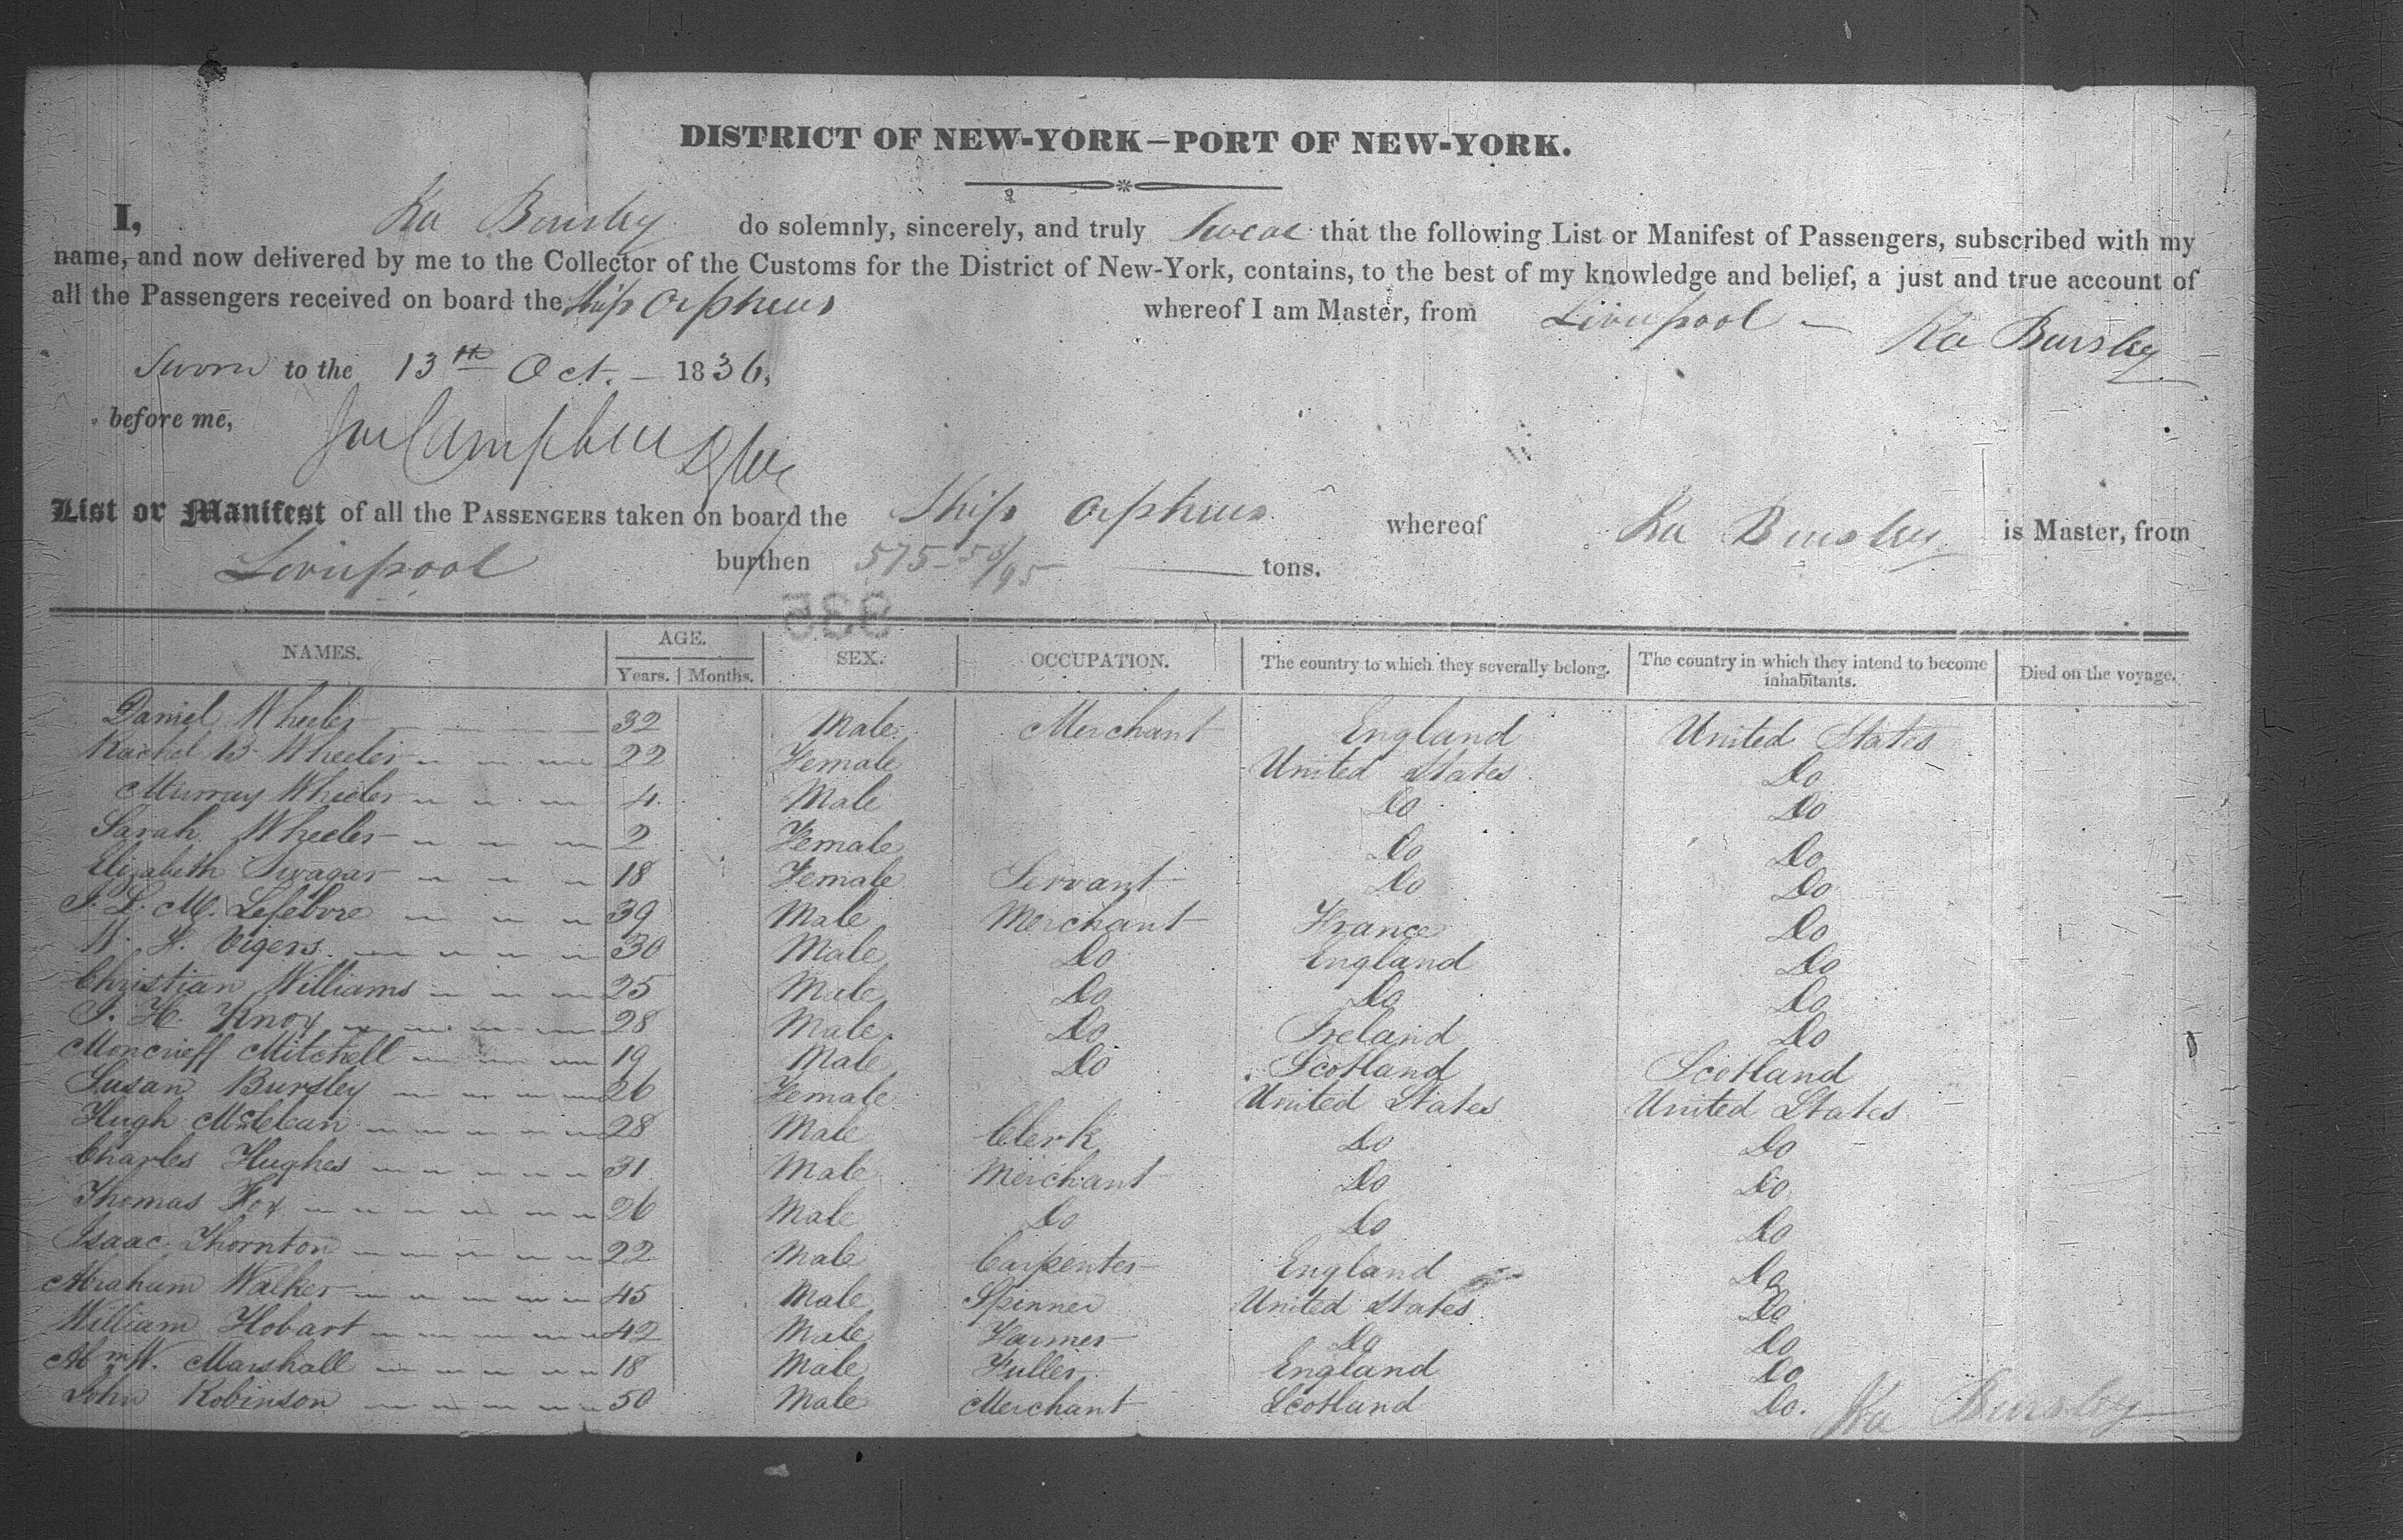 DISTRICT OF NEW-YORK—PORT OF NEW-YORK.
I, Ira Bursley do solemnly, sincerely, and truly swear that the following List or Manifest of Passengers, subscribed with my
name, and now delivered by me to the Collector of the Customs for the District of New-York, contains, to the best of my knowledge and belief, a just and true account of
all the Passengers received on board the Ship Orpheus whereof I am Master, from Liverpool —
Ira Bursley
Sworn to the 13th Oct. — 1836,
before me,
Campbell
List or Manifest of all the PASSENGERS taken on board the Ship Orpheus whereof Ira Bursley is Master, from
Liverpool burthen 575 53/95 tons.
335
NAMES. AGE. Years. Months. SEX. OCCUPATION. The country to which they severally belong. The country in which they intend to become inhabitants. Died on the voyage.
Daniel Wheeler 32 Male Merchant England United States
Rachel B Wheeler 22 Female United States Do
Murray Wheeler 4 Male Do Do
Sarah Wheeler 2 Female Do Do
Elizabeth Swagar 18 Female Servant Do Do
J. L. M. Lefebvre 39 Male Merchant France Do
W. H. Vigers 30 Male Do England Do
Christian Williams 25 Male Do Do Do
J. H. Knox 28 Male Do Ireland Do
Moncrieff Mitchell 19 Male Do Scotland Scotland
Susan Bursley 26 Female United States United States
Hugh McClean 28 Male Clerk Do Do
Charles Hughes 31 Male Merchant Do Do
Thomas Fox 26 Male Do Do Do
Isaac Thornton 22 Male Carpenter England Do
Abraham Walker 45 Male Spinner United States Do
William Hobart 42 Male Farmer Do Do
Abm W. Marshall 18 Male Fuller England Do
John Robinson 50 Male Merchant Scotland Do.
Ira Bursley